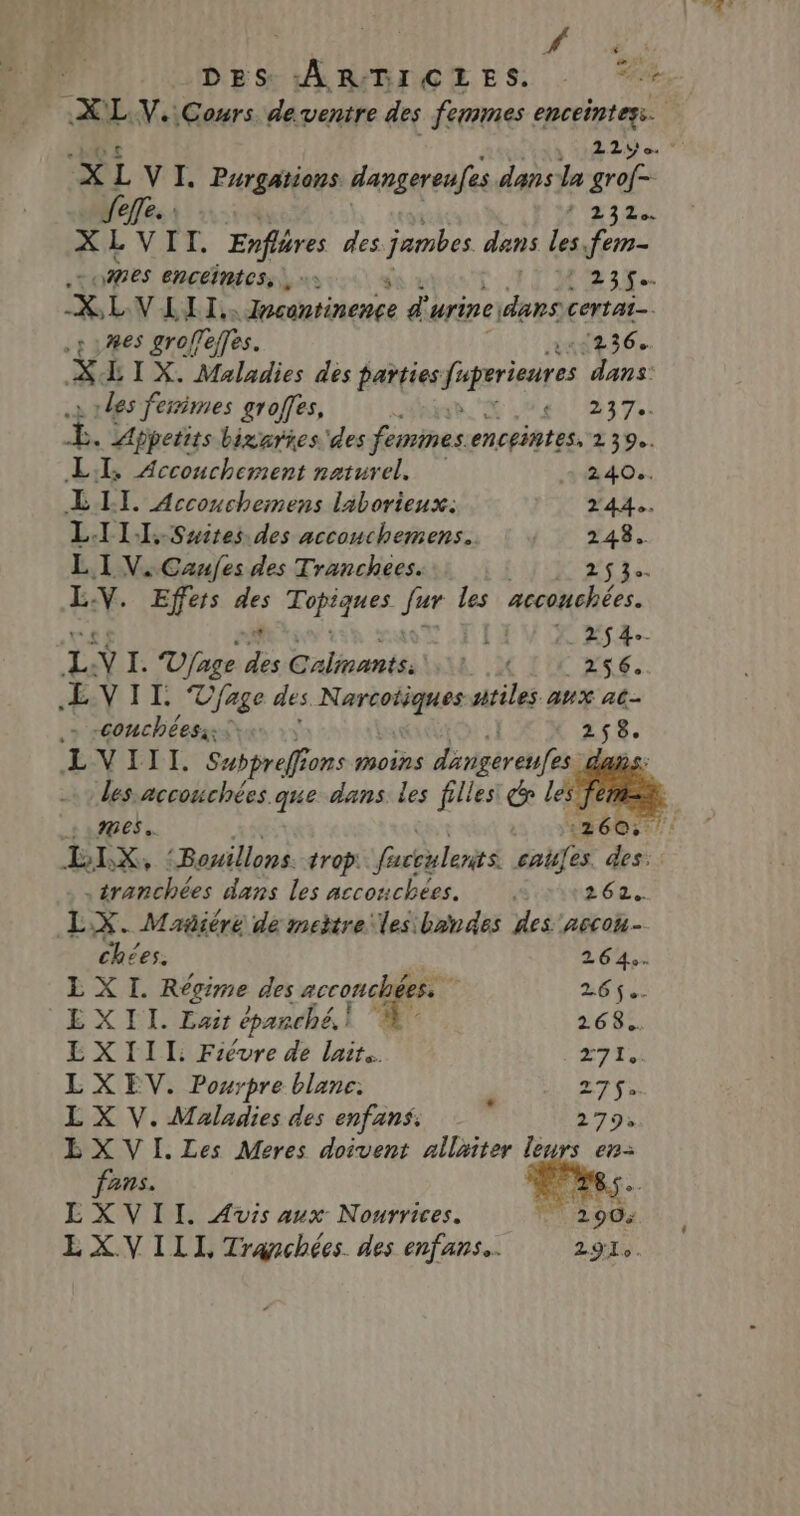 DES ARTICLES.
XLV. Cours de ventre des femmes enceintes.
229.
XLVI. Purgations dangereuſes dans la groſ-
ſeſſe. 232.
XLVII. Enflûres des jambes dans les fem-
mes enceintes, 235.
XLVIII. Incontinence d'urine dans certai-
nes groſſeſſes. 236.
XLIX. Maladies des parties ſuperieures dans
les femmes groſſes, 237.
L. Appetits bizarres des femmes enceintes. 239.
LI. Accouchement naturel. 240.
LII. Accouchemens laborieux. 244.
LIII. Suites des accouchemens. 248.
LIV. Cauſes des Tranchées. 253.
LV. Effets des Topiques ſur les accouchées.
254.
LVI. Uſage des Calmants. 256.
LVII. Uſage des Narcotiques utiles aux ac-
couchées. 258.
LVIII. Suppreſſions moins dangereuſes dans
les accouchées que dans les filles & les fem-
mes. 260.
LIX. Bouillons trop ſucculents cauſes des
tranchées dans les accouchées. 262.
LX. Maniére de mettre les bandes des accou-
chées. 264.
LXI. Régime des accouchées. 265.
LXII. Lait épanché. 268.
LXIII. Fiévre de lait. 271.
LXIV. Pourpre blanc. 275.
LXV. Maladies des enfans. 279.
LXVI. Les Meres doivent allaiter leurs en-
fans. 285.
LXVII. Avis aux Nourrices. 290.
LXVIII. Tranchées des enfans. 291.